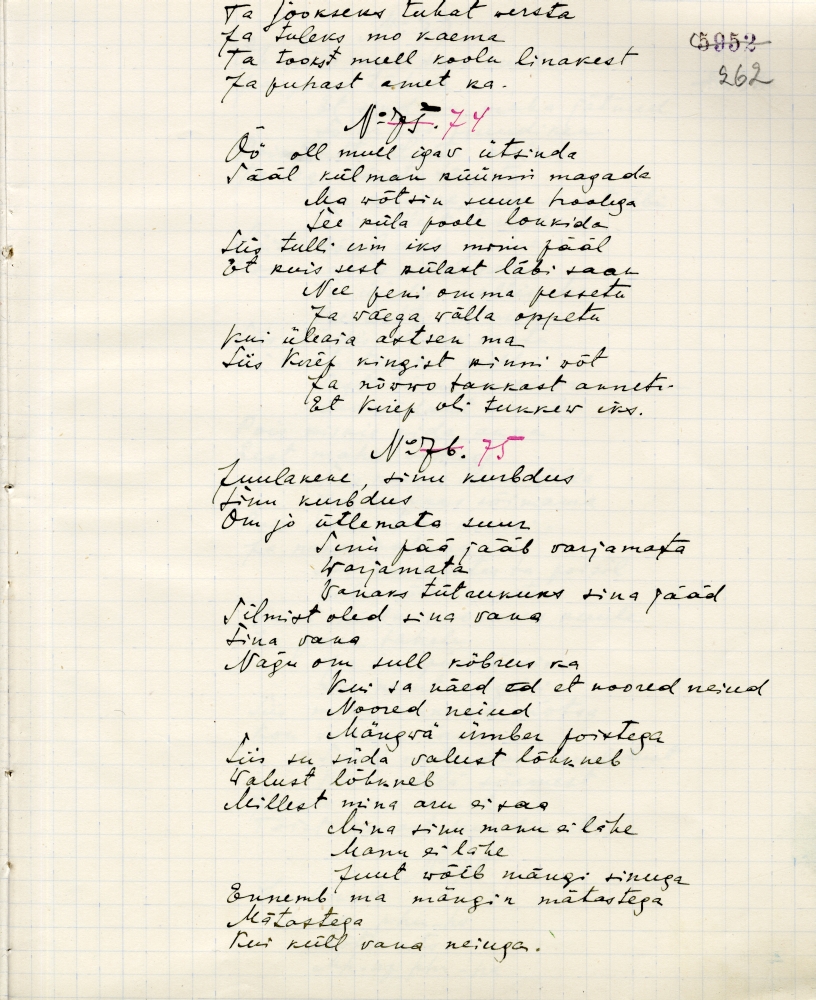 Ta jookseks tuhat wersta
Ja tuleks mo kaema
5952
Ta tookst mull koola linakest
262
Ja puhast amet ka.
No 75. 74
Öö oll mull igav ütsinda
Sääl külman küünin magada
Ma wõtsin suure hoolega
See küla poole lonkida
Siis tulli irm iks minu pääl
Et kuis sest külast läbi saan
Nee peni omma pessetu
Ja wäega wälla oppetu
Kui üleaia astsen ma
Siis Kirep kingist kinni wõt
Ja nõwwo takkast anneti
Et Kirep oli tukkew iks.
No 76. 75
Juulakene, sinu kurbdus
Sinu kurbdus
Om jo ütlemata suur
Sinu pää jääb varjamata
Warjamata
Vanaks tütrukuks sina jääd
Silmist oled sina vana
Sina vana
Nägu om sull kõbrus ka
Kui sa näed ed et noored neiud
Noored neiud
Mängwä ümber poistega
Siis su süda valust lõhkneb
Walust lõhkneb
Millest mina aru ei saa
Mina sinu manu ei lähe
Manu ei lähe
Juut wõib mängi sinuga
Ennemb ma mängin mätastega
Mätastega
Kui küll vana neiuga.